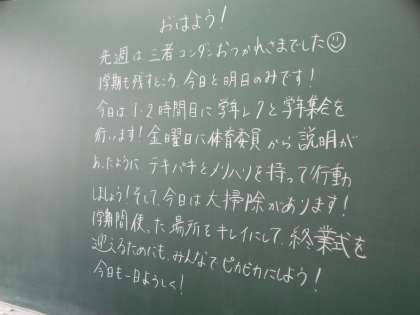 おはよう!
先週は三者コンダンおつかれさまでした☺
1学期も残すところ、今日と明日のみです!
今日は1・2時間目に学年レクと学年集会を
行います!金曜日に体育委員から説明が
あったようにテキパキとメリハリを持って行動
しましょう!そして、今日は大掃除があります!
1学期間使った場所をキレイにして、終業式を
迎えるためにも、みんなでピカピカにしよう!
今日も一日よろしく!